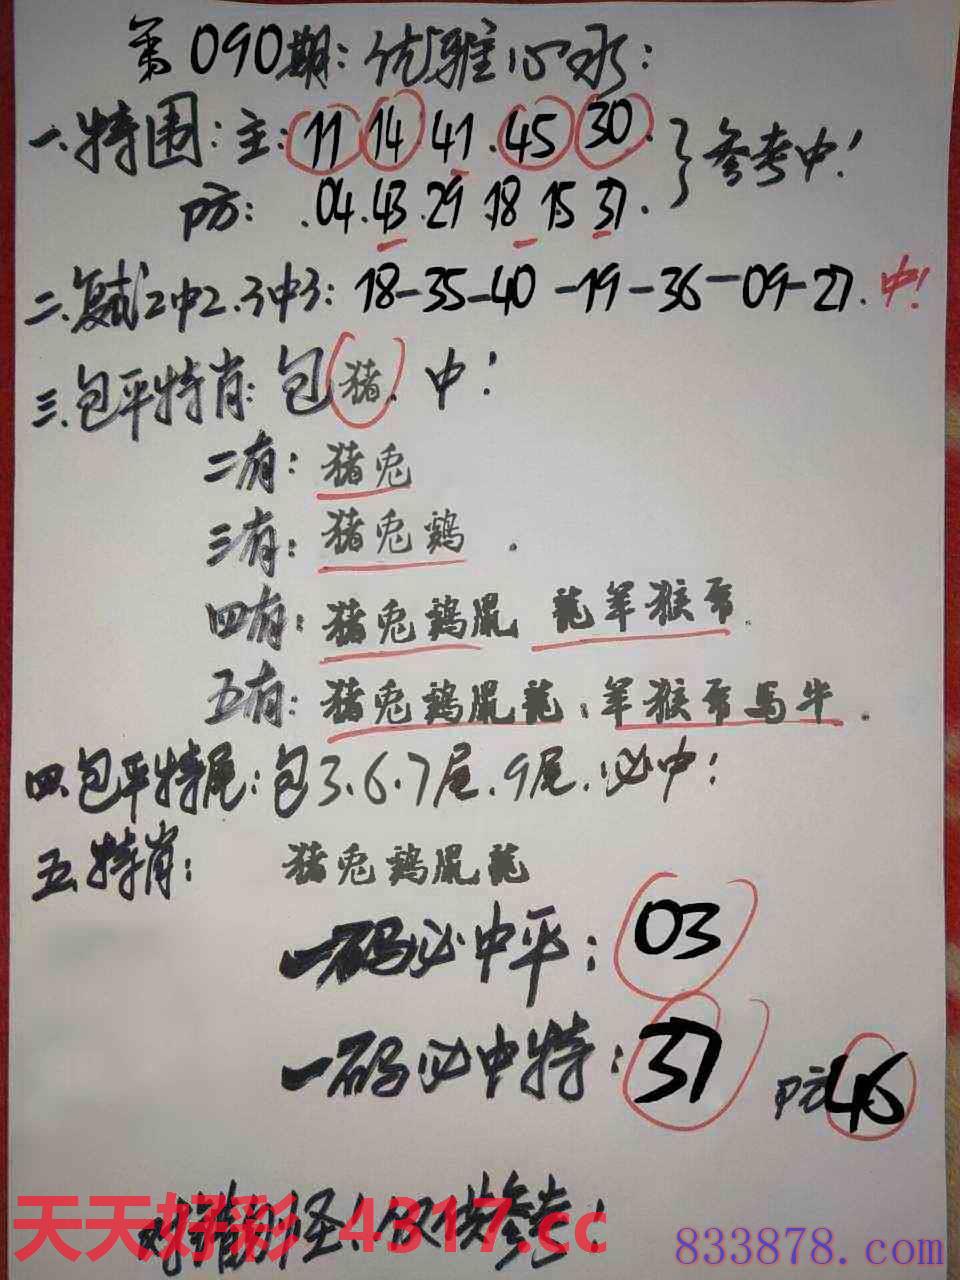 第090期:优雅心水:
一.特围:主:11 14.41.45 30. }参考中!
防:.04.43.29.18 15 37.
二.复试2中2.3中3:18-35-40-19-36-09-27.中!
三.包平特肖:包猪.中!
二有:猪兔
三有:猪兔鷄.
四有:猪兔鷄鼠 龍羊猴
五有:猪兔鷄鼠龍:羊猴 馬牛.
四.包平特尾:包3.6.7尾.9尾.必中!
五.特肖: 猪兔鷄鼠龍
一码必中平:03
一码必中特:37 防46
对错勿怪!仅供参考!
天天好彩 4317.cc
833878.com